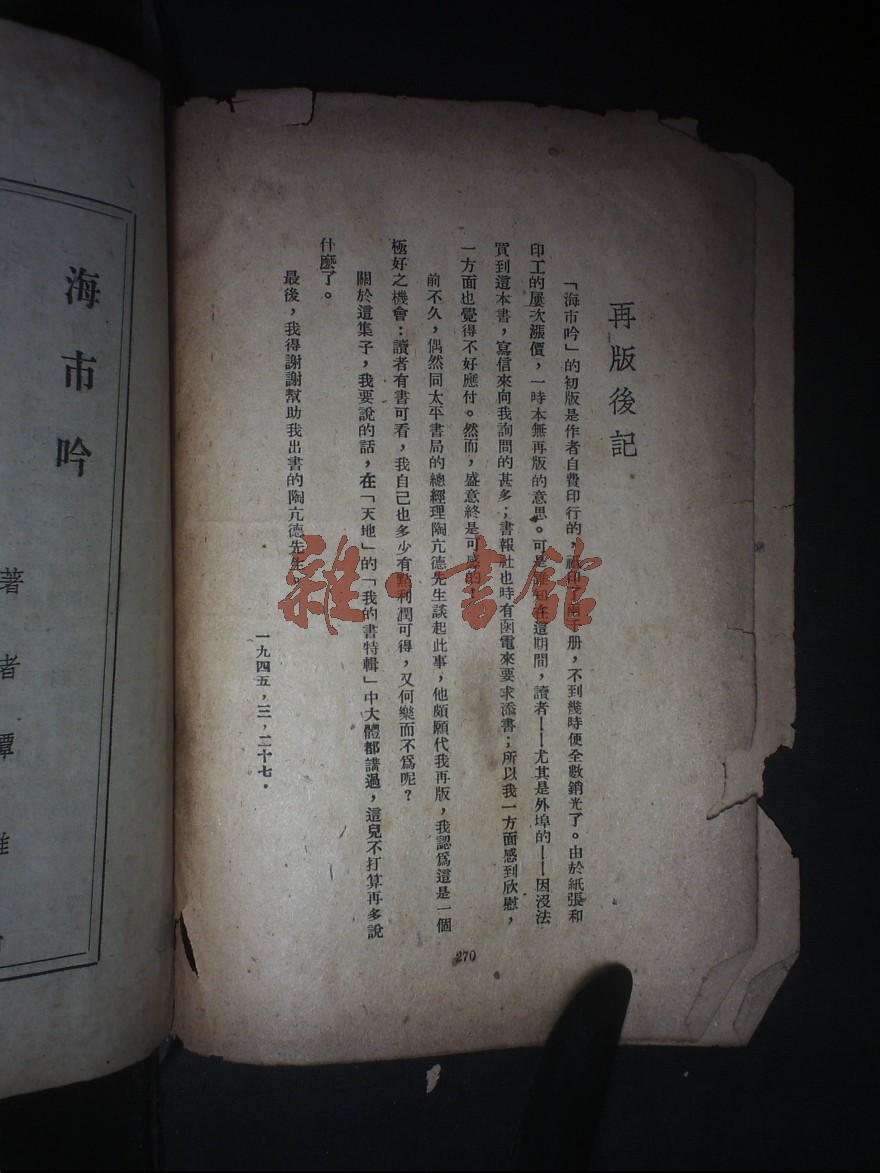 再版後記
「海市吟」的初版是作者自費印行的,祗印了兩千册,不到幾時便全數銷光了。由於紙張和
印工的屢次漲價,一時本無再版的意思。可是誰知在這期間,讀者——尤其是外埠的——因沒法
買到這本書,寫信來向我詢問的甚多;書報社也時有函電來要求添書;所以我一方面感到欣慰,
一方面也覺得不好應付。然而,盛意終是可感的!
前不久,偶然同太平書局的總經理陶亢德先生談起此事,他頗願代我再版,我認爲這是一個
極好之機會:讀者有書可看,我自己也多少有點利潤可得,又何樂而不爲呢?
關於這集子,我要說的話,在「天地」的「我的書特輯」中大體都講過,這兒不打算再多說
什麼了。
最後,我得謝謝幫助我出書的陶亢德先生。
一九四五,三,二十七。
270
海市吟
著者譚
雜·書館